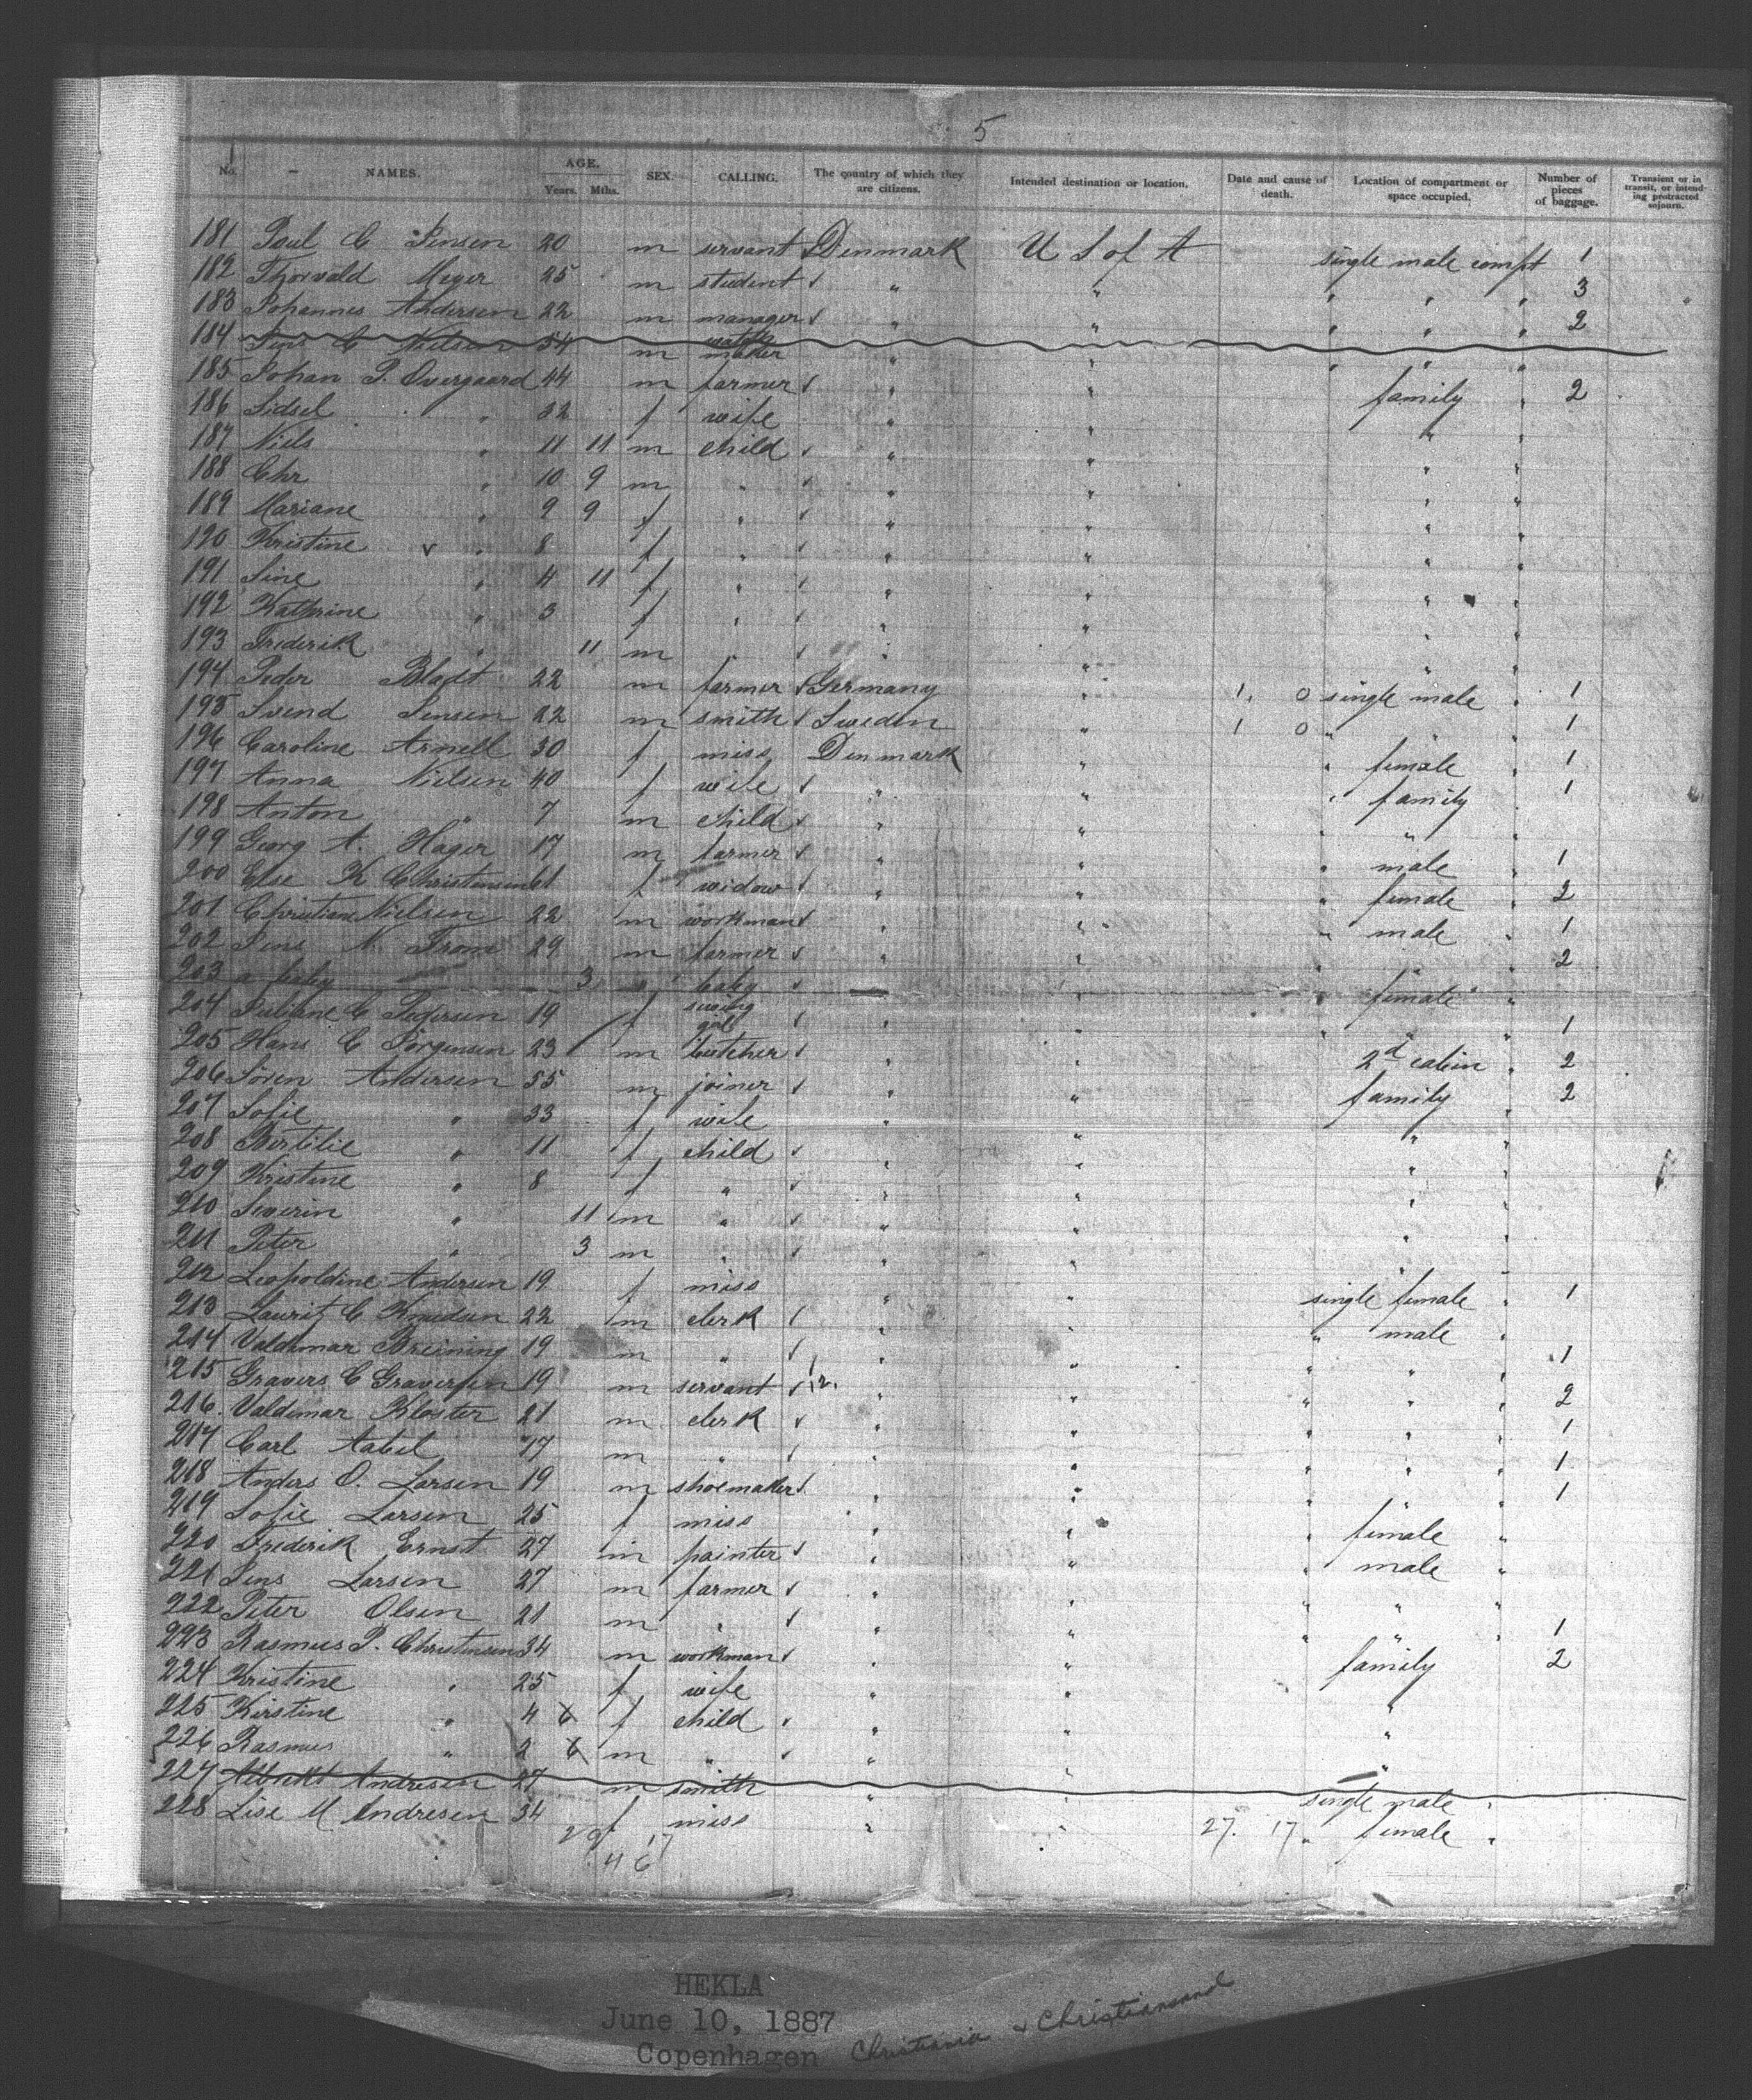 5
No. NAMES. AGE. Years. Mths. SEX. CALLING. The country of which they are citizens. Intended destination or location. Date and cause of death. Location of compartment or space occupied. Number of pieces of baggage. Transient or in transit, or intending protracted sojourn.
181 Poul C Jensen 20 m servant Denmark U S of A single male compt 1
182 Thorvald Meyer 25 m student " " " " " 3
183 Johannes Andersen 22 m manager " " " " " 2
184 Jens C Nielsen 54 m watch maker " " " " "
185 Johan P. Overgaard 44 m farmer " " family " 2
186 Sidsel " 32 f wife " " " "
187 Niels " 11 11 m child " " " "
188 Chr " 10 9 m " " " " "
189 Mariane " 9 9 f " " " " "
190 Kristine " 8 f " " " " "
191 Sine " 4 11 f " " " " "
192 Kathrine " 3 f " " " " "
193 Frederik " 11 m " " " " "
194 Peder 22 m farmer Germany " 1. 0 single male " 1
195 Svend Jensen 22 m smith Sweden " 1 0 " " " 1
196 Caroline Arnell 30 f miss Denmark " " female " 1
197 Anna Nielsen 40 f wife " " " family " 1
198 Anton " 7 m child " " " " "
199 Georg A. Hager 17 m farmer " " " male " 1
200 Else K Christensen 61 f widow " " " female " 2
201 Christian Nielsen 22 m workman " " " male " 1
202 Jens N. From 29 m farmer " " " " " 2
203 a baby 3 " baby " " " female "
204 Juliane C Pedersen 19 f sewing girl " " " " " 1
205 Hans C Jörgensen 23 m butcher " " 2d cabin " 2
206 Sören Andersen 55 m joiner " " family " 2
207 Sofie " 33 f wife " " " "
208 Bertilie " 11 f child " " " "
209 Kristine " 8 f " " " " "
210 Severin " 11 m " " " " "
211 Peter " 3 m " " " " "
212 Leopoldine Andersen 19 f miss " " single female " 1
213 Laurits C Knudsen 22 m clerk " " " male "
214 Valdemar Breining 19 m " " " " " " 1
215 Gravers C Graversen 19 m servant " " " " " 2
216. Valdemar Kloster 21 m clerk " " " " " 1
217 Carl Aabel 17 m " " " " " " 1
218 Anders O. Larsen 19 m shoemaker " " " " " 1
219 Sofie Larsen 25 f miss " " " female "
220 Frederik Ernst 27 m painter " " " male "
221 Jens Larsen 27 m farmer " " " " "
222 Peter Olsen 21 m " " " " " " 1
223 Rasmus P. Christensen 34 m workman " " family 2
224 Kristine " 25 f wife " " "
225 Kirstine " 4 6 f child " " "
226 Rasmus " 2 6 m " " " "
227 Andresen 27 m smith " " single male "
228 Lise M Andresen 34 f miss " " 27. 17 " female "
29 17
46
HEKLA
June 10, 1887
Copenhagen Christiania & Christiansand